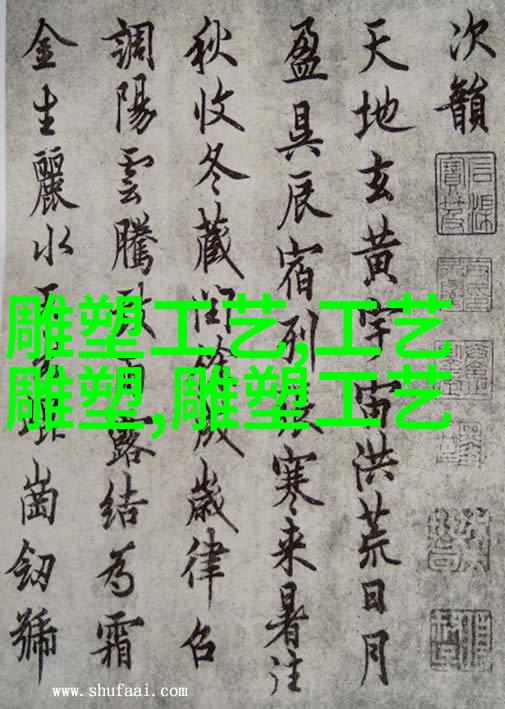 次韻
天地玄黃宇宙洪荒日月
盈昃辰宿列張寒来暑往
秋收冬藏閏餘成歲律召
調陽雲騰致雨露結為霜
金生麗水崗劒號
雕塑工艺,工艺
雕塑,雕塑工艺
www.shufaai.com